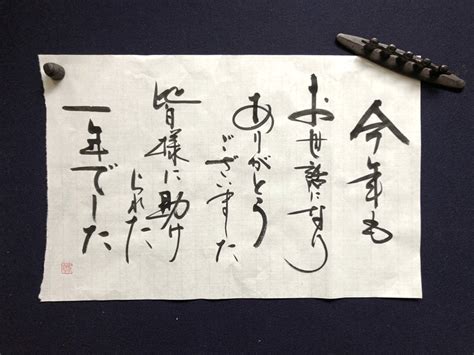 今年も
お世話になり
ありがとう
ございました
皆様に助け
られた
一年でした